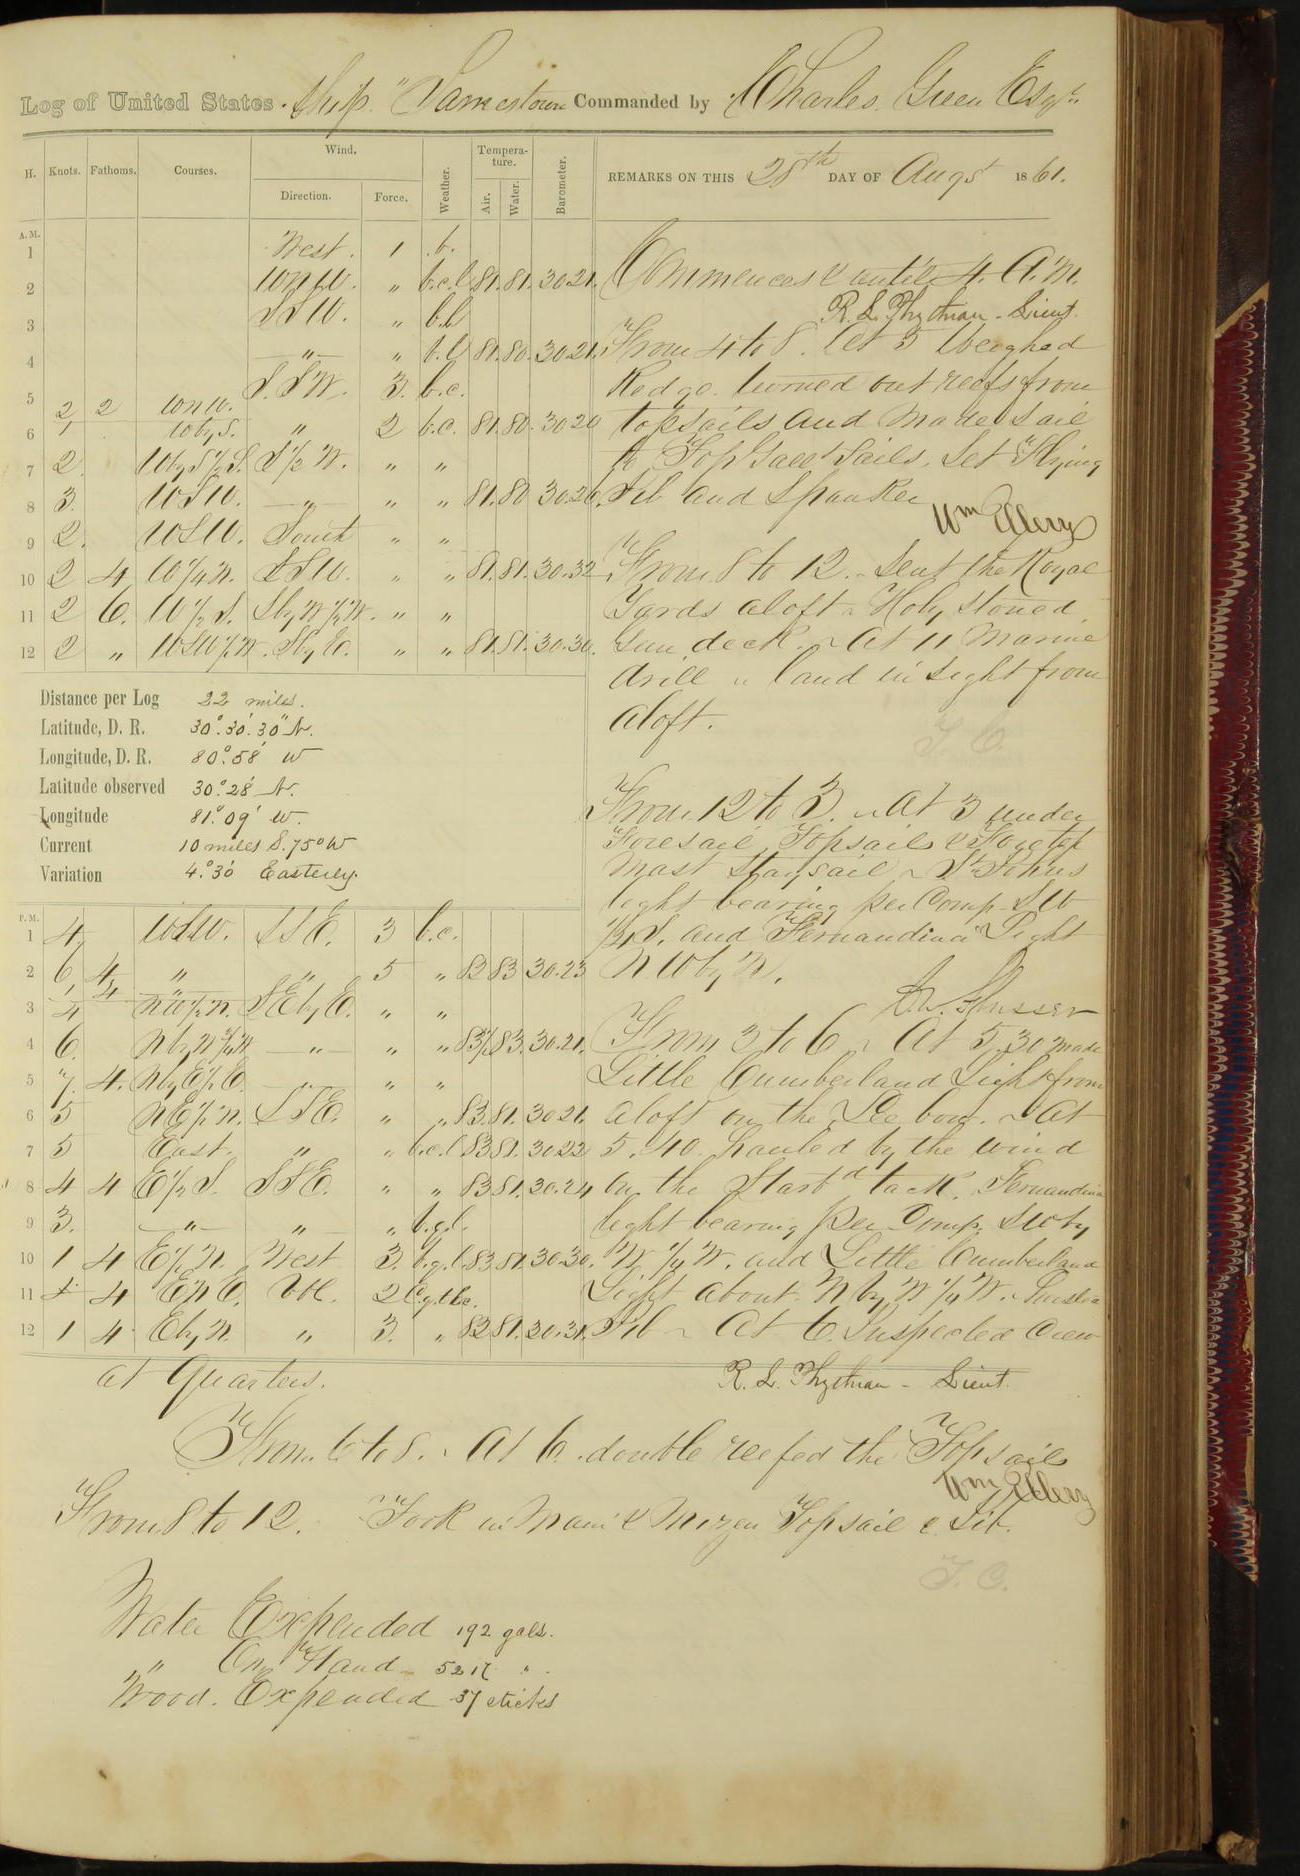 Log of United States Ship "Jamestown Commanded by Charles Green Esqr.
H. Knots. Fathoms. Courses. Wind. Direction. Force. Weather. Tempera-ture. Air. Water. Barometer. REMARKS ON THIS 28th DAY OF Augst 1861.
A.M.
1 West. 1 b.
2 WNW. " b.c.l 81. 81. 30.21.
3 SSW. " b.l
4 —"— " b.l 81. 80. 30.21.
5 S.SW. 3. b.c.
2 2 WNW.
6 1 W by S. " 2 b.c. 81. 80. 30 20
7 2 W by S 1/2 S. S 1/2 W. " "
8 3. WSW. —"— " " 81. 80 30.20.
9 2. WSW. South " "
10 2 4 W 1/4 N. SSW. " " 81. 81. 30.32
11 2 6. W 1/2 S. S by W 1/2 W. " "
12 2 " WSW 1/2 W. S by E. " " 81. 81. 30.30.
Commences & until 4. A.M.
R. L. Phythian - Lieut.
From 4 to 8. At 5 Weighed
Kedge. turned out reefs from
topsails and made sail
to Top Gall't Sails. Set Flying
Jib and Spanker
Wm Ellery
From 8 to 12. Sent the Royal
Yards aloft Holy stoned
Gun deck. At 11 Marine
drill " land in sight from
aloft.
T. C.
Distance per Log 22 miles.
Latitude, D. R. 30°.30'.30" N.
Longitude, D. R. 80°.58' W
Latitude observed 30°.28' N.
Longitude 81°.09' W.
Current 10 miles S.75°W
Variation 4°.30' Easterly.
From 12 to 3. At 3 under
Foresail, Topsails & Foretop
mast Staysail St Johns
light bearing per Comp. SW
3/4 S. and Fernandina Light
NW by N.
From 3 to 6 At 5.30 made
Little Cumberland Light from
aloft on the Lee bow. At
5.40 hauled by the wind
on the Starbd tack. Fernandina
light bearing per Comp. SW by
W 1/4 W. and Little Cumberland
Light about N by W 1/4 W.
Jib At 6. Inspected Crew
P.M.
1 4. WSW. SSE. 3 b.c.
2 6, 4 " " 5 " 83 83 30.23
3 NW 1/2 N. SE by E. " "
4 6. —"— " " 83 1/2 83. 30.21.
5 7. 4. N by E 1/2 E. —"— " "
6 5 NE 1/2 N. SSE. " " 83. 81. 30 21.
7 5 East. " " b.c.l 83 81. 30.22
8 4 4 E 1/2 S. SSE. " " 83 81. 30.24
9 3. —"— " " b.g.l.
10 1 4 E 1/2 N. West 3. b.g.l. 83 81. 30.30.
11 4 2
12 1 4 E by N. " 3. " 82 81. 30.31.
at Quarters. R. L. Phythian - Lieut.
From 6 to 8. At 6. double reefed the Topsails
Wm Ellery
From 8 to 12. Took in Main & Mizen Topsail & Jib.
T. C.
Water Expended 192 gals.
" On Hand
Wood. Expended 37 sticks